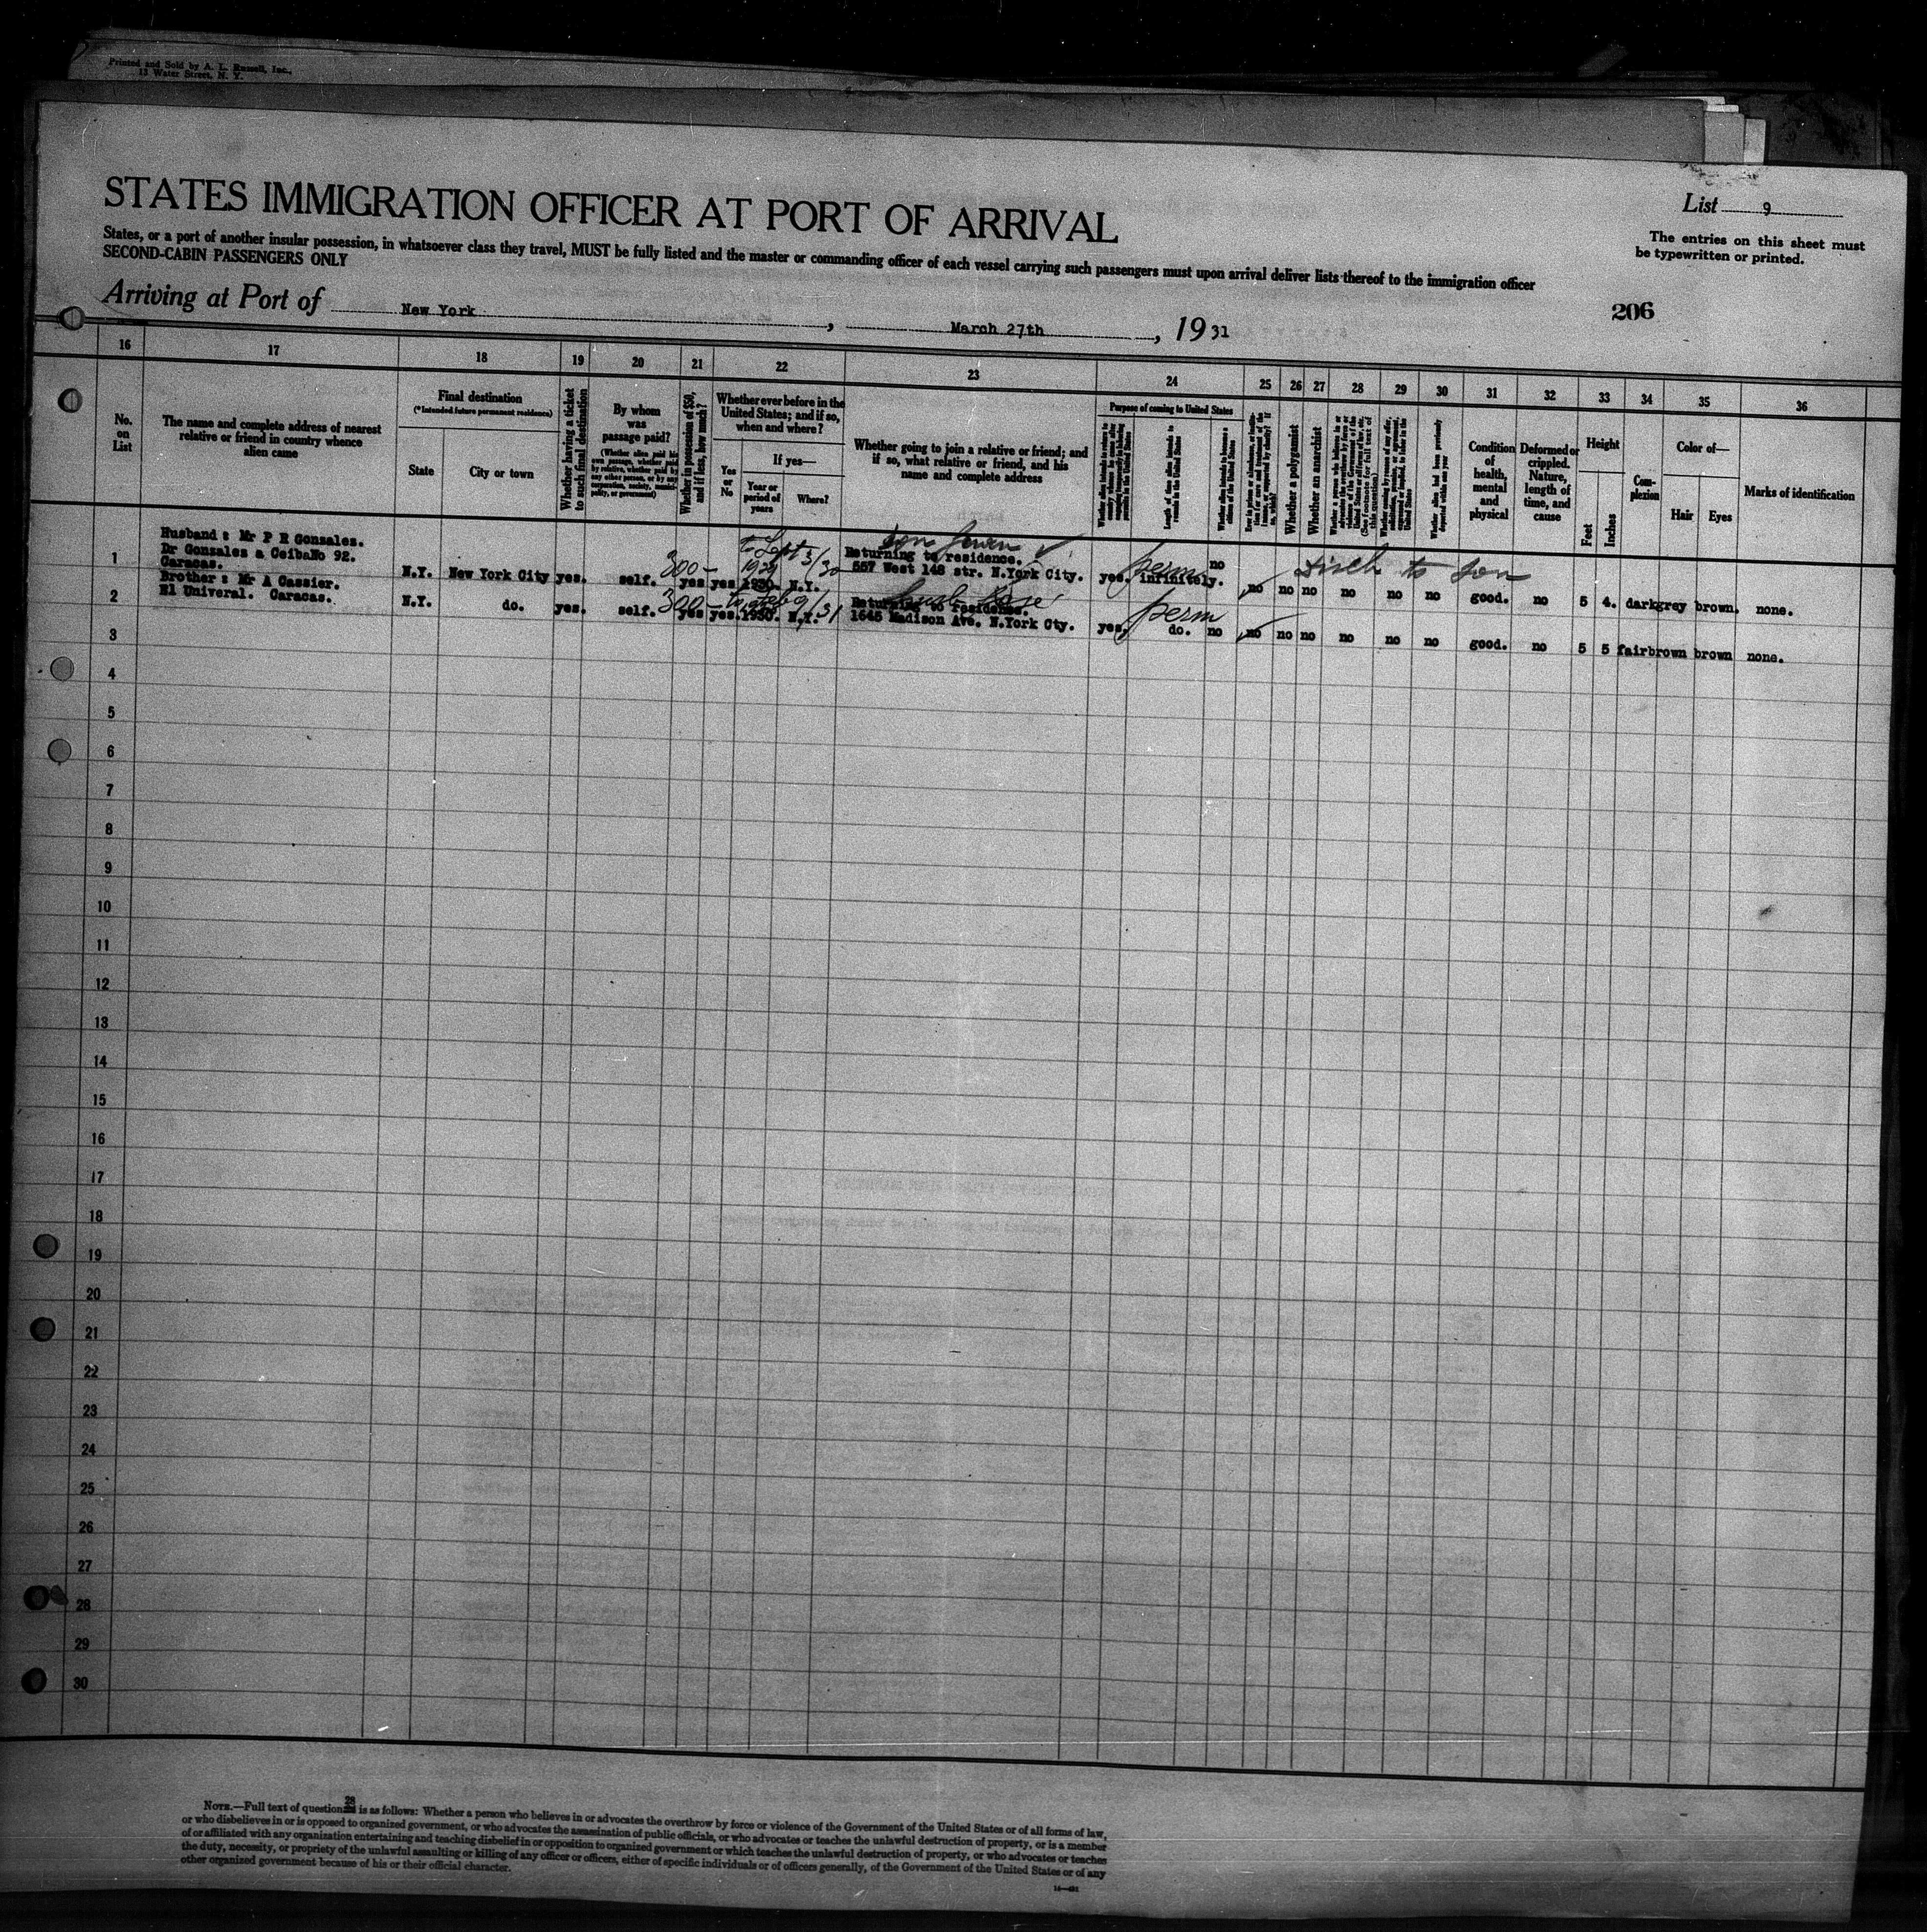 Printed and Sold by A. L. Russell, Inc.,
13 Water Street, N. Y.
STATES IMMIGRATION OFFICER AT PORT OF ARRIVAL
List 9
The entries on this sheet must
be typewritten or printed.
States, or a port of another insular possession, in whatsoever class they travel, MUST be fully listed and the master or commanding officer of each vessel carrying such passengers must upon arrival deliver lists thereof to the immigration officer
SECOND-CABIN PASSENGERS ONLY
Arriving at Port of New York, March 27th, 19 31
206
16 17 18 19 20 21 22 23 24 25 26 27 28 29 30 31 32 33 34 35 36
No.
on
List
The name and complete address of nearest
relative or friend in country whence
alien came
Final destination
(*Intended future permanent residence)
State
City or town
Whether having a ticket
to such final destination
By whom
was
passage paid?
(Whether alien paid his
own passage, whether paid
by relative, whether paid by
any other person, or by any
corporation, society, munici-
pality, or government)
Whether in possession of $50,
and if less, how much?
Whether ever before in the
United States; and if so,
when and where?
Yes
or
No
If yes—
Year or
period of
years
Where?
Whether going to join a relative or friend; and
if so, what relative or friend, and his
name and complete address
Purpose of coming to United States
Length of time alien intends to
remain in the United States
Whether alien intends to become a
citizen of the United States
Whether a polygamist
Whether an anarchist
Whether alien had been previously
deported within one year
Condition
of
health,
mental
and
physical
Deformed or
crippled.
Nature,
length of
time, and
cause
Height
Feet
Inches
Com-
plexion
Color of—
Hair
Eyes
Marks of identification
1
Husband : Mr P R Gonzales.
Dr Gonzales a CeibaNo 92.
Caracas.
N.Y. New York City yes. self. 300 - yes yes 1930. N.Y.
to Sept 3/30
1929
son
Returning to residence.
557 West 148 str. N.York City.
yes. perm infinitely. no no no no no no no good. no 5 4. dark grey brown. none.
to son
2
Brother : Mr A Cassier.
El Univeral. Caracas.
N.Y. do. yes. self. 300 - yes yes. 1930. N.Y.
Returning to residence.
1645 Madison Ave. N.York Cty.
yes. perm do. no no no no no no no good. no 5 5 fair brown brown none.
3
4
5
6
7
8
9
10
11
12
13
14
15
16
17
18
19
20
21
22
23
24
25
26
27
28
29
30
NOTE.—Full text of question 28 is as follows: Whether a person who believes in or advocates the overthrow by force or violence of the Government of the United States or of all forms of law,
or who disbelieves in or is opposed to organized government, or who advocates the assassination of public officials, or who advocates or teaches the unlawful destruction of property, or is a member
of or affiliated with any organization entertaining and teaching disbelief in or opposition to organized government or which teaches the unlawful destruction of property, or who advocates or teaches
the duty, necessity, or propriety of the unlawful assaulting or killing of any officer or officers, either of specific individuals or of officers generally, of the Government of the United States or of any
other organized government because of his or their official character.